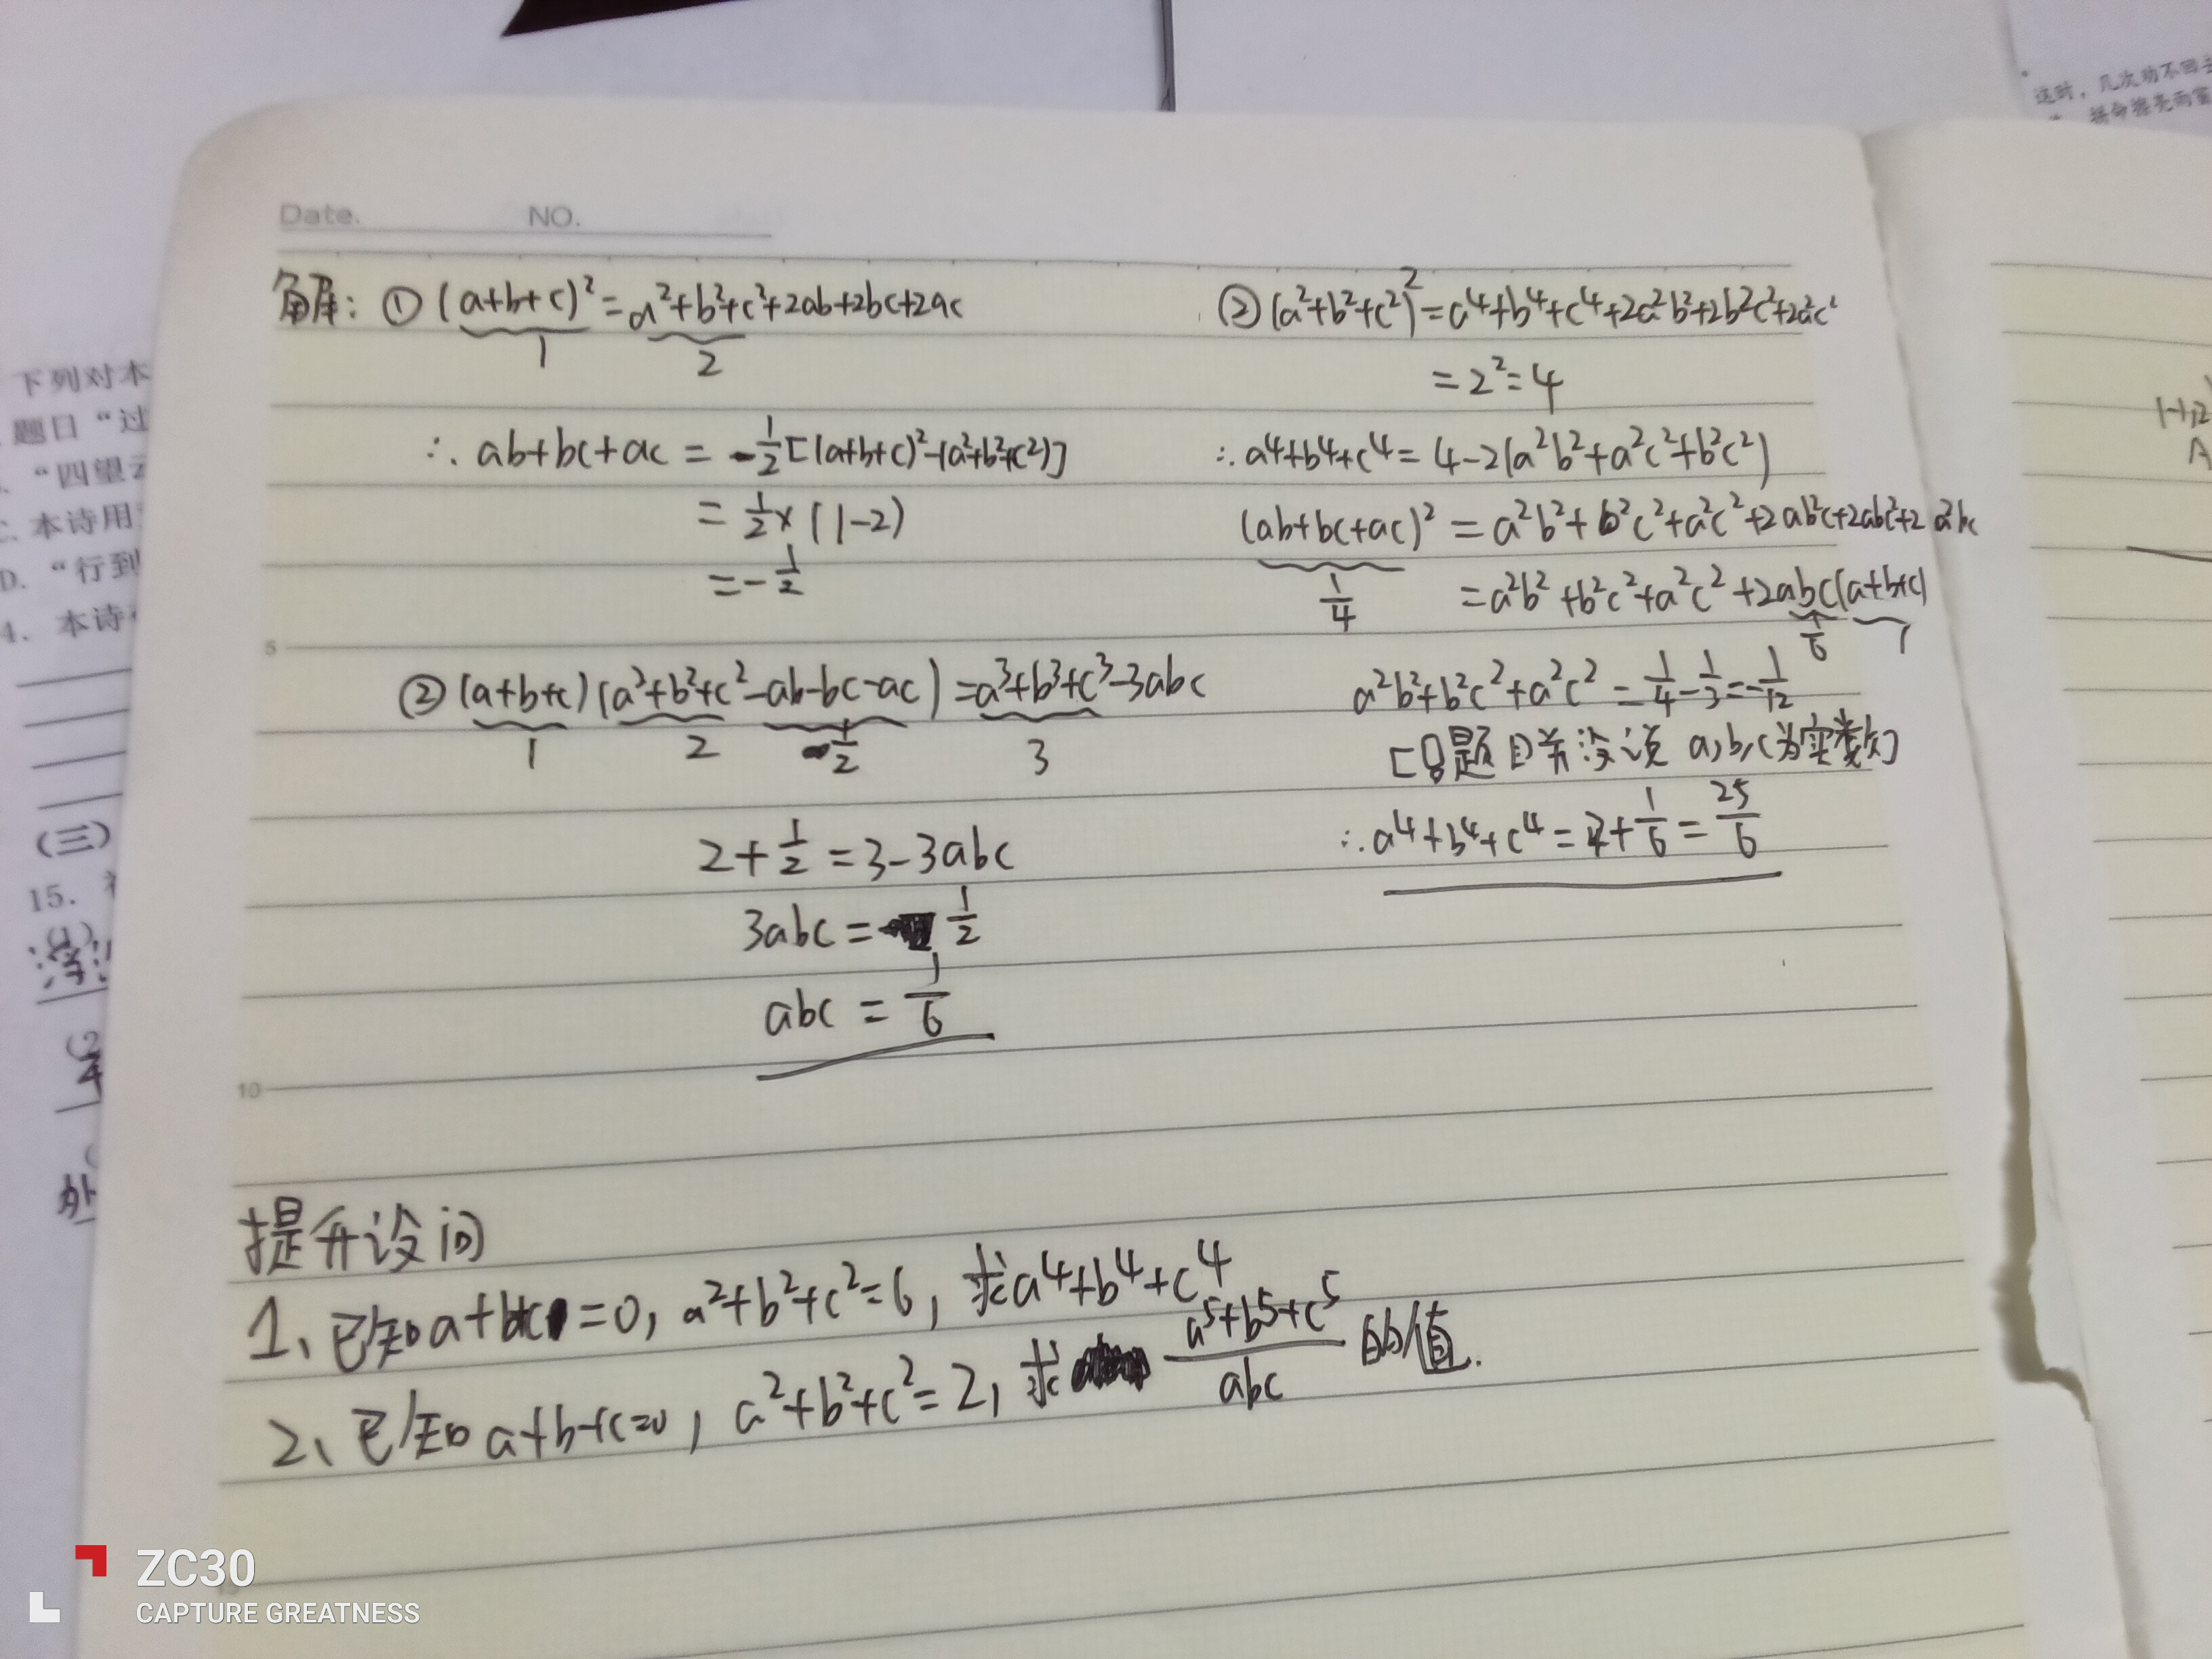 Date. NO.
解: ① (a+b+c)²=a²+b²+c²+2ab+2bc+2ac
1 2
∴ ab+bc+ac = 1/2[(a+b+c)²-(a²+b²+c²)]
= 1/2×(1-2)
=-1/2
5
② (a+b+c)(a²+b²+c²-ab-bc-ac)=a³+b³+c³-3abc
1 2 -1/2 3
2+1/2=3-3abc
3abc=1/2
abc=1/6
10
② (a²+b²+c²)²=a⁴+b⁴+c⁴+2a²b²+2b²c²+2a²c²
=2²=4
∴a⁴+b⁴+c⁴=4-2(a²b²+a²c²+b²c²)
(ab+bc+ac)²=a²b²+b²c²+a²c²+2ab²c+2abc²+2a²bc
1/4 =a²b²+b²c²+a²c²+2abc(a+b+c)
1/6 1
a²b²+b²c²+a²c²=1/4-1/3=-1/12
[因题目并没说a,b,c为实数]
∴a⁴+b⁴+c⁴=4+1/6=25/6
提升设问
1、已知a+b+c=0, a²+b²+c²=6, 求a⁴+b⁴+c⁴
2、已知a+b+c=0, a²+b²+c²=2, 求 (a⁵+b⁵+c⁵)/abc 的值.
下列对本
题目“过
“四望
本诗用
D. “行到
4. 本诗
(三)
15.
这时，几次劝不回去
ZC30
CAPTURE GREATNESS